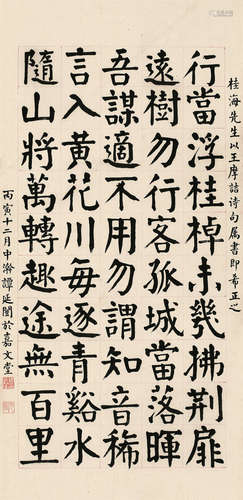 桂海先生以王摩詰詩句属書即希正之
行當浮桂棹未幾拂荆扉
遠樹勿行客孤城當落暉
吾謀適不用勿謂知音稀
言入黃花川每逐青谿水
隨山將萬轉趣途無百里
丙寅十二月中澣譚延闓於嘉文堂